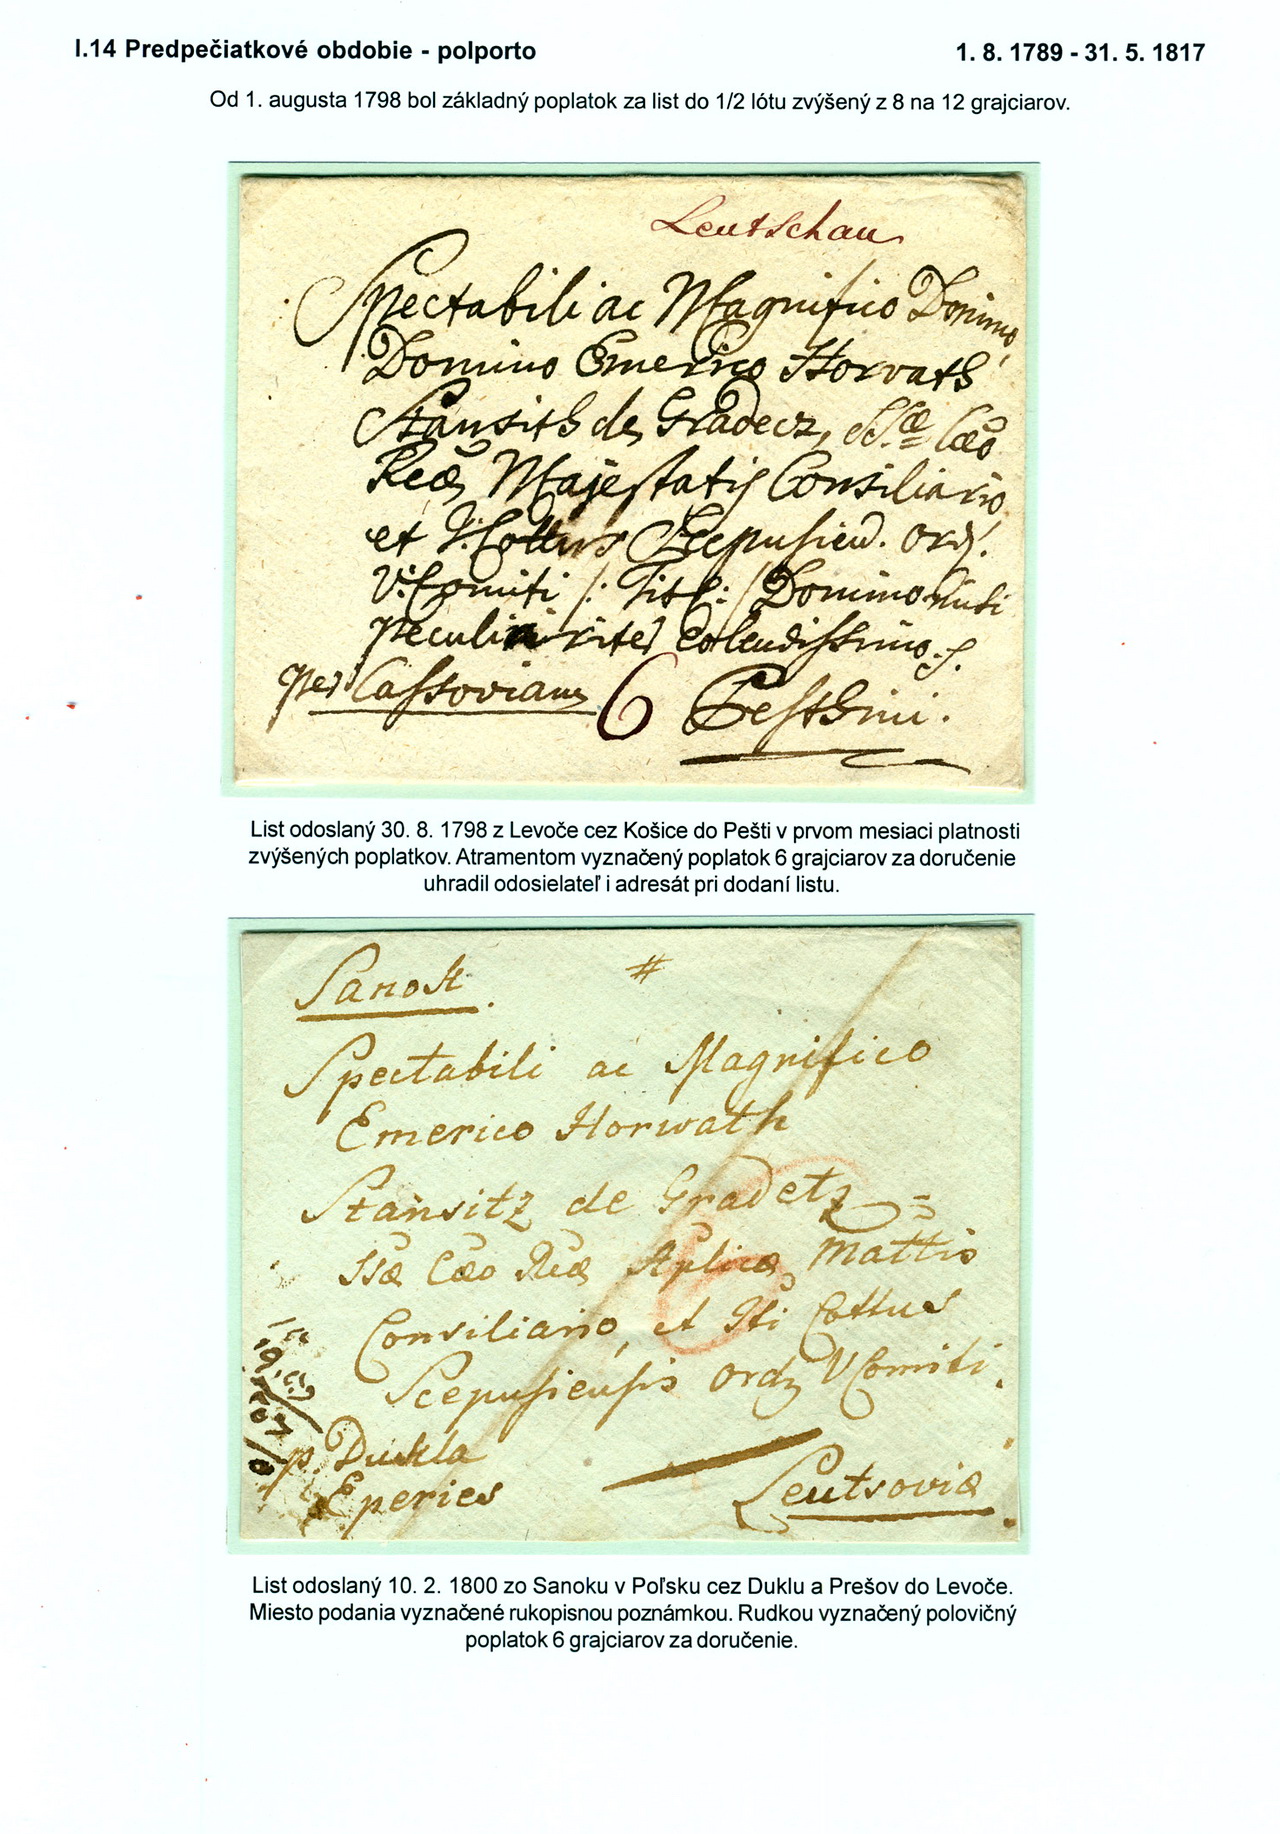 I.14 Predpečiatkové obdobie - polporto
1. 8. 1789 - 31. 5. 1817
Od 1. augusta 1798 bol základný poplatok za list do 1/2 lótu zvýšený z 8 na 12 grajciarov.
Leutschau
Spectabili ac Magnifico Domino,
Domino Emerico Horvath
Stansith de Gradecz, SSæ Cæo
Reæ Majestatis Consiliario
et I: Cottus Scepusien. ord.
V: Comiti /: Titl: / Domino mihi
peculiariter colendissimo.
per Cassoviam
6
Pesthini.
Sanok.
#
Spectabili ac Magnifico
Emerico Horwath
Stansitz de Gradetz =
6
SSæ Cæo Reæ Aplicæ Mattis
Consiliario, et Iti Cottus
Scepusiensis ord VComiti.
p. Dukla
Eperies
Leutsoviæ
List odoslaný 30. 8. 1798 z Levoče cez Košice do Pešti v prvom mesiaci platnosti
zvýšených poplatkov. Atramentom vyznačený poplatok 6 grajciarov za doručenie
uhradil odosielateľ i adresát pri dodaní listu.
List odoslaný 10. 2. 1800 zo Sanoku v Poľsku cez Duklu a Prešov do Levoče.
Miesto podania vyznačené rukopisnou poznámkou. Rudkou vyznačený polovičný
poplatok 6 grajciarov za doručenie.